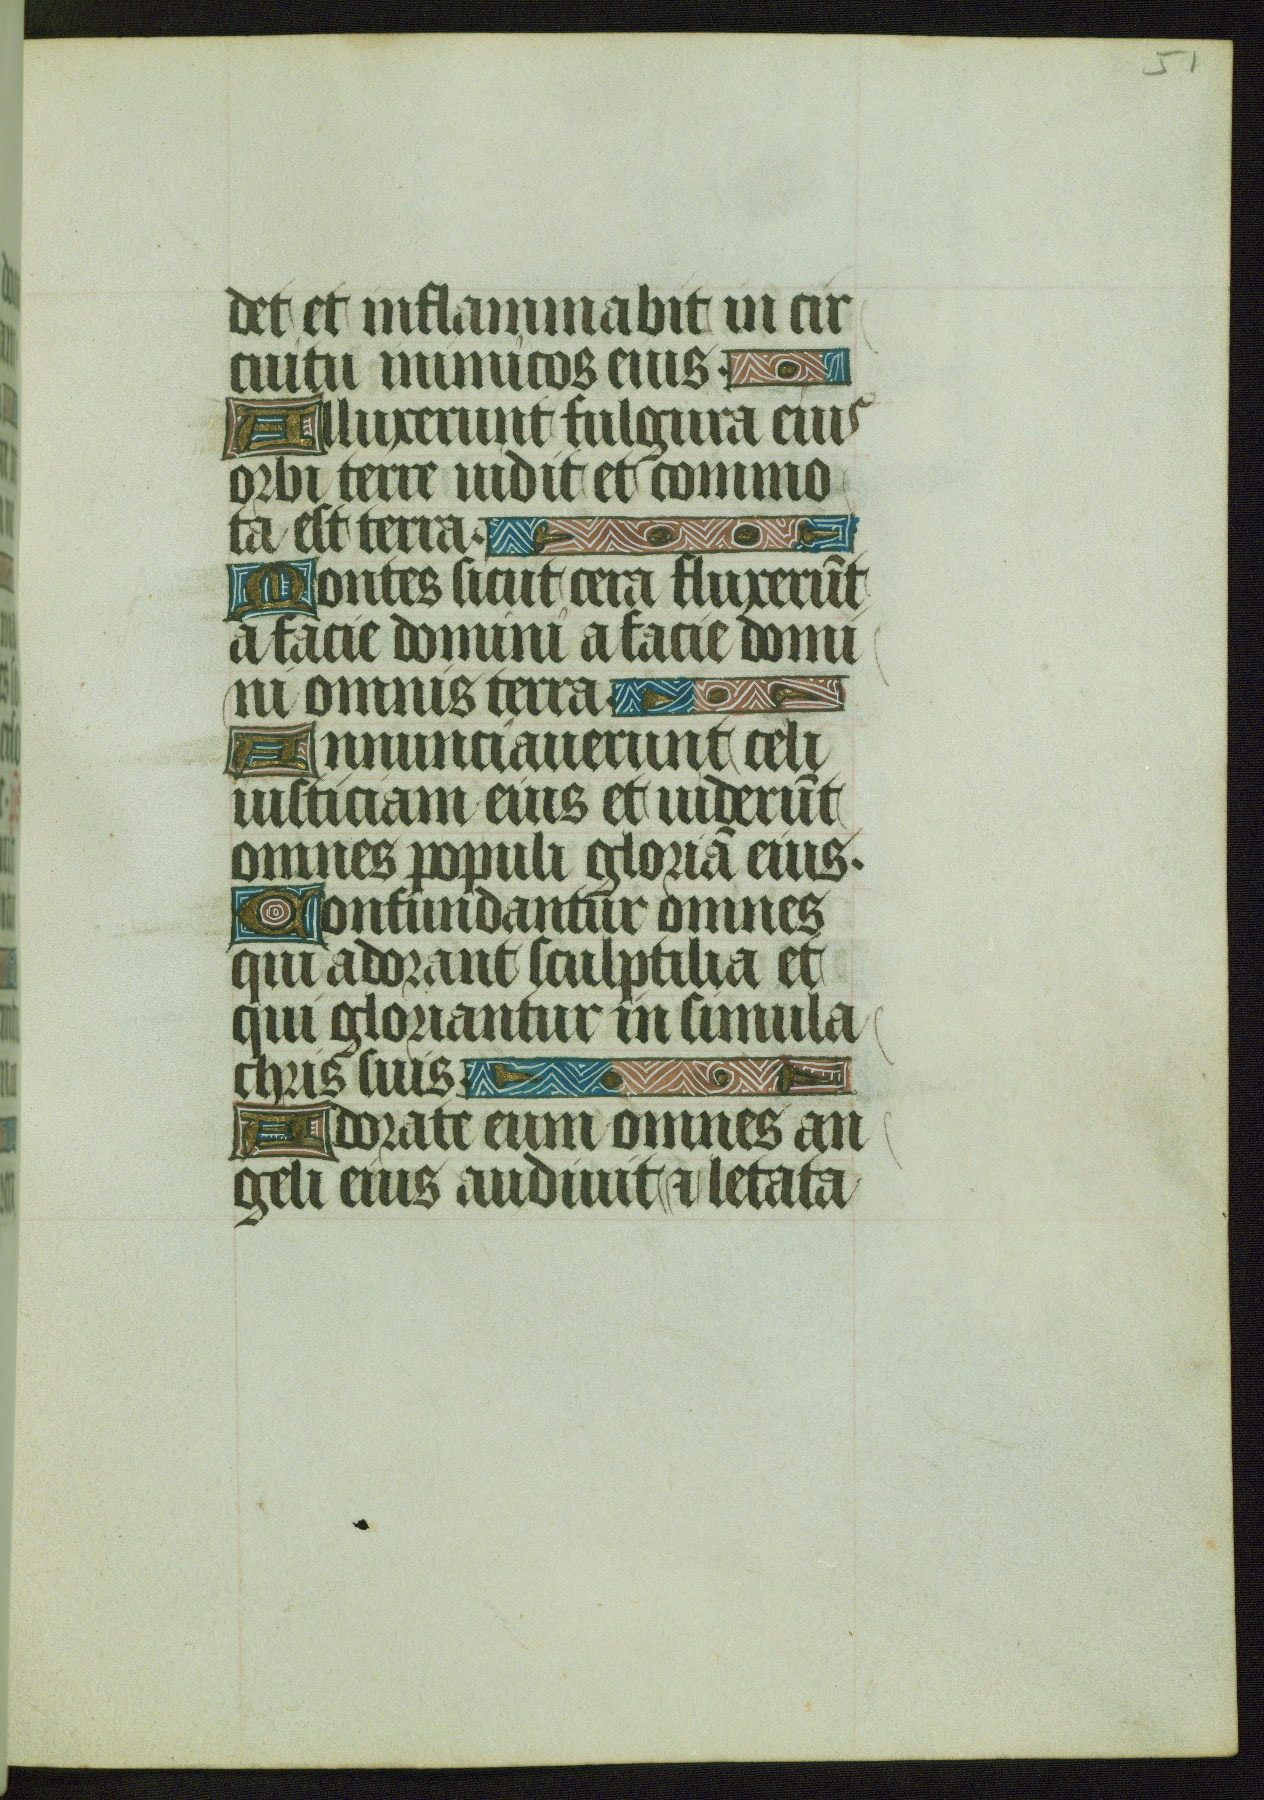 51
det et inflammabit in cir
cuitu inimicos eius.
Alluxerunt fulgura eius
orbi terre uidit et commo
ta est terra.
Montes sicut cera fluxerūt
a facie domini a facie domi
ni omnis terra.
Annunciauerunt celi
iusticiam eius et uiderūt
omnes populi gloriā eius.
Confundantur omnes
qui adorant sculptilia et
qui gloriantur in simula
chris suis.
Adorate eum omnes an
geli eius audiuit ⁊ letata